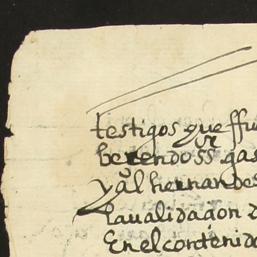 testigos que ffu
berendo ss gas
y al hernandes
la ualidaçon d
En el contenido